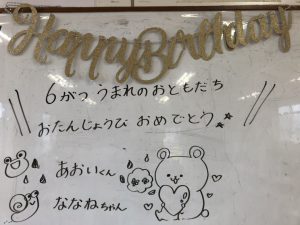 Happy Birthday
6がつ うまれの おともだち
おたんじょうび おめでとう
あおいくん
ななねちゃん